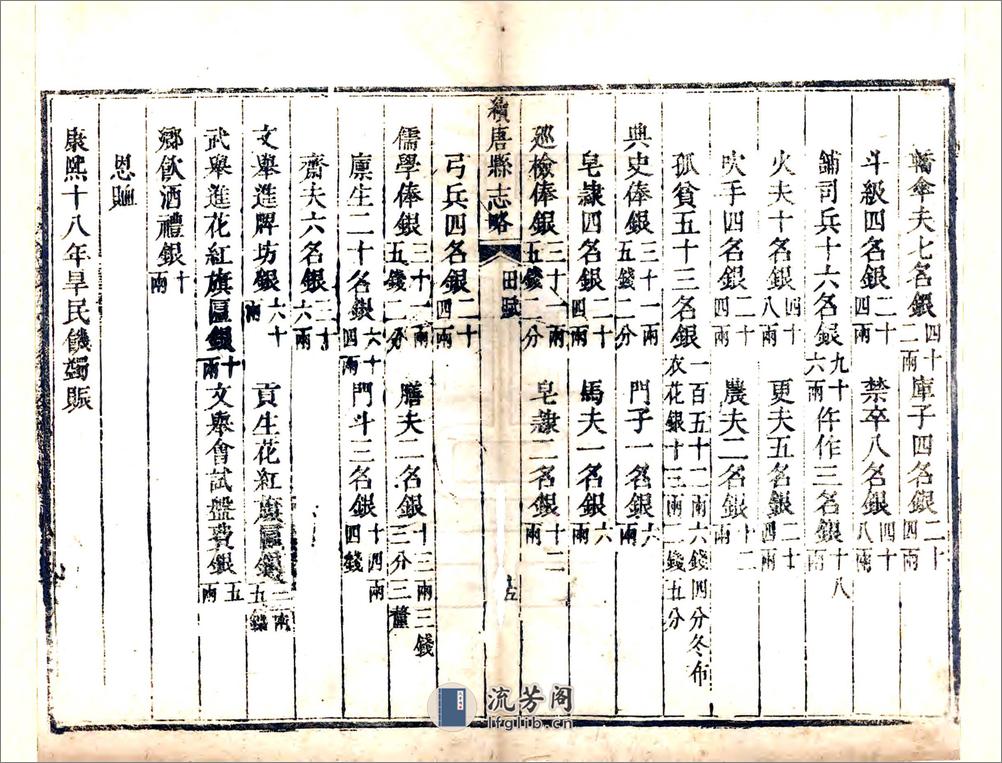 轎傘夫七名銀四十二兩 庫子四名銀二十四兩
斗級四名銀二十四兩 禁卒八名銀四十八兩
鋪司兵十六名銀九十六兩 仵作三名銀十八兩
火夫十名銀四十八兩 更夫五名銀二十四兩
吹手四名銀二十四兩 農夫二名銀十二兩
孤貧五十三名銀一百五十二兩六錢四分冬布衣花銀十三兩二錢五分
典史俸銀三十一兩五錢二分 門子一名銀六兩
皂隸四名銀二十四兩 馬夫一名銀六兩
廵檢俸銀三十一兩五錢二分 皂隸二名銀十二兩
續唐縣志略 田賦
弓兵四名銀二十四兩
儒學俸銀三十一兩五錢二分 膳夫二名銀十三兩三錢三分三釐
廪生二十名銀六十四兩 門斗三名銀十四兩四錢
齋夫六名銀三十六兩
文舉進牌坊銀六十兩 貢生花紅旗匾銀二兩五錢
武舉進花紅旗匾銀十兩 文舉會試盤費銀五兩
鄉飲酒禮銀十兩
恩
康熙十八年旱民饑蠲賑
流芳阁
lfglib.cn